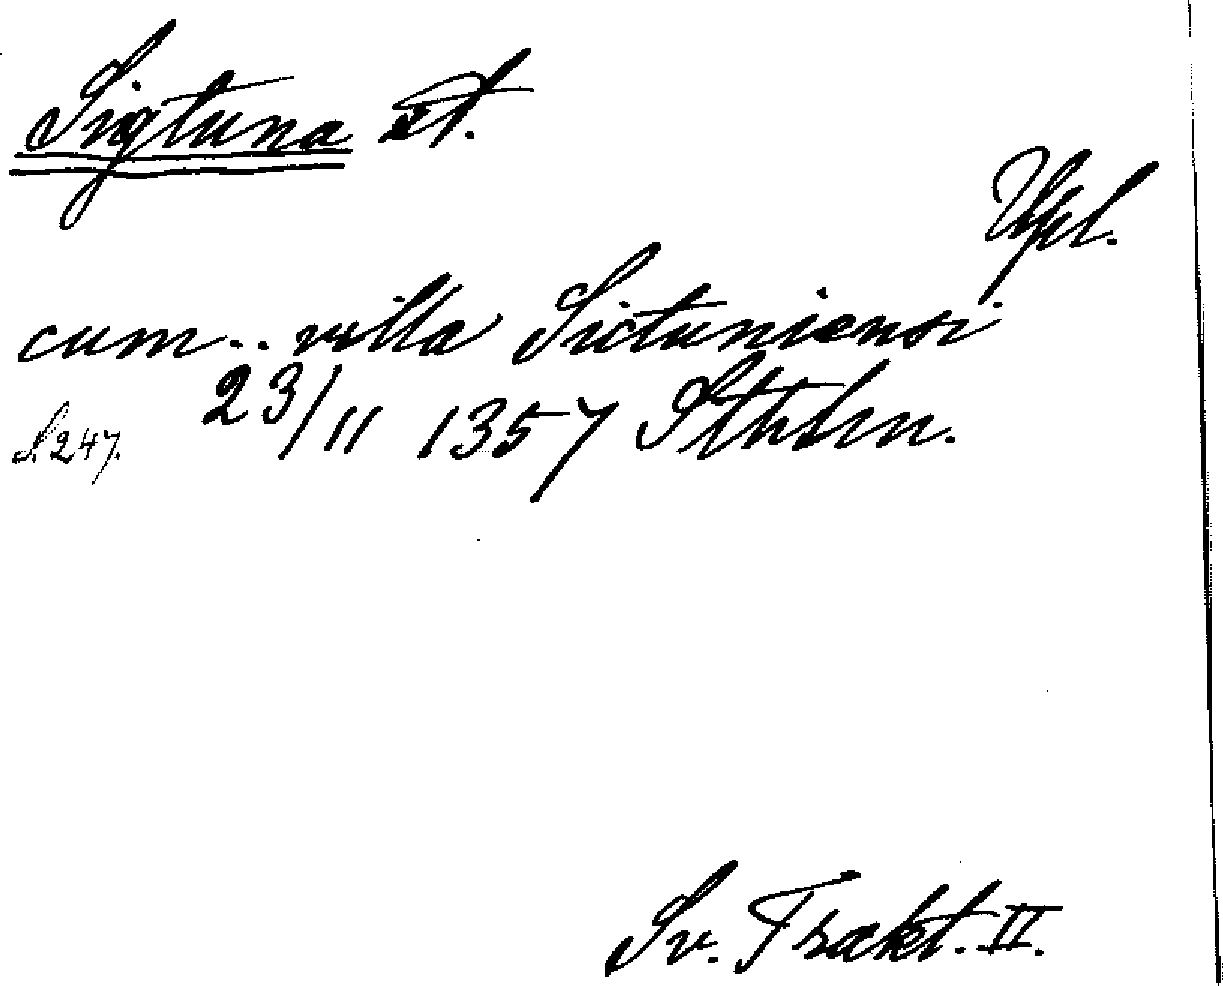 Sigtuna st.
Upl.
cum .. villa Sictuniensi
23/11 1357 Sthlm.
S. 247.
Sv. Trakt. II.